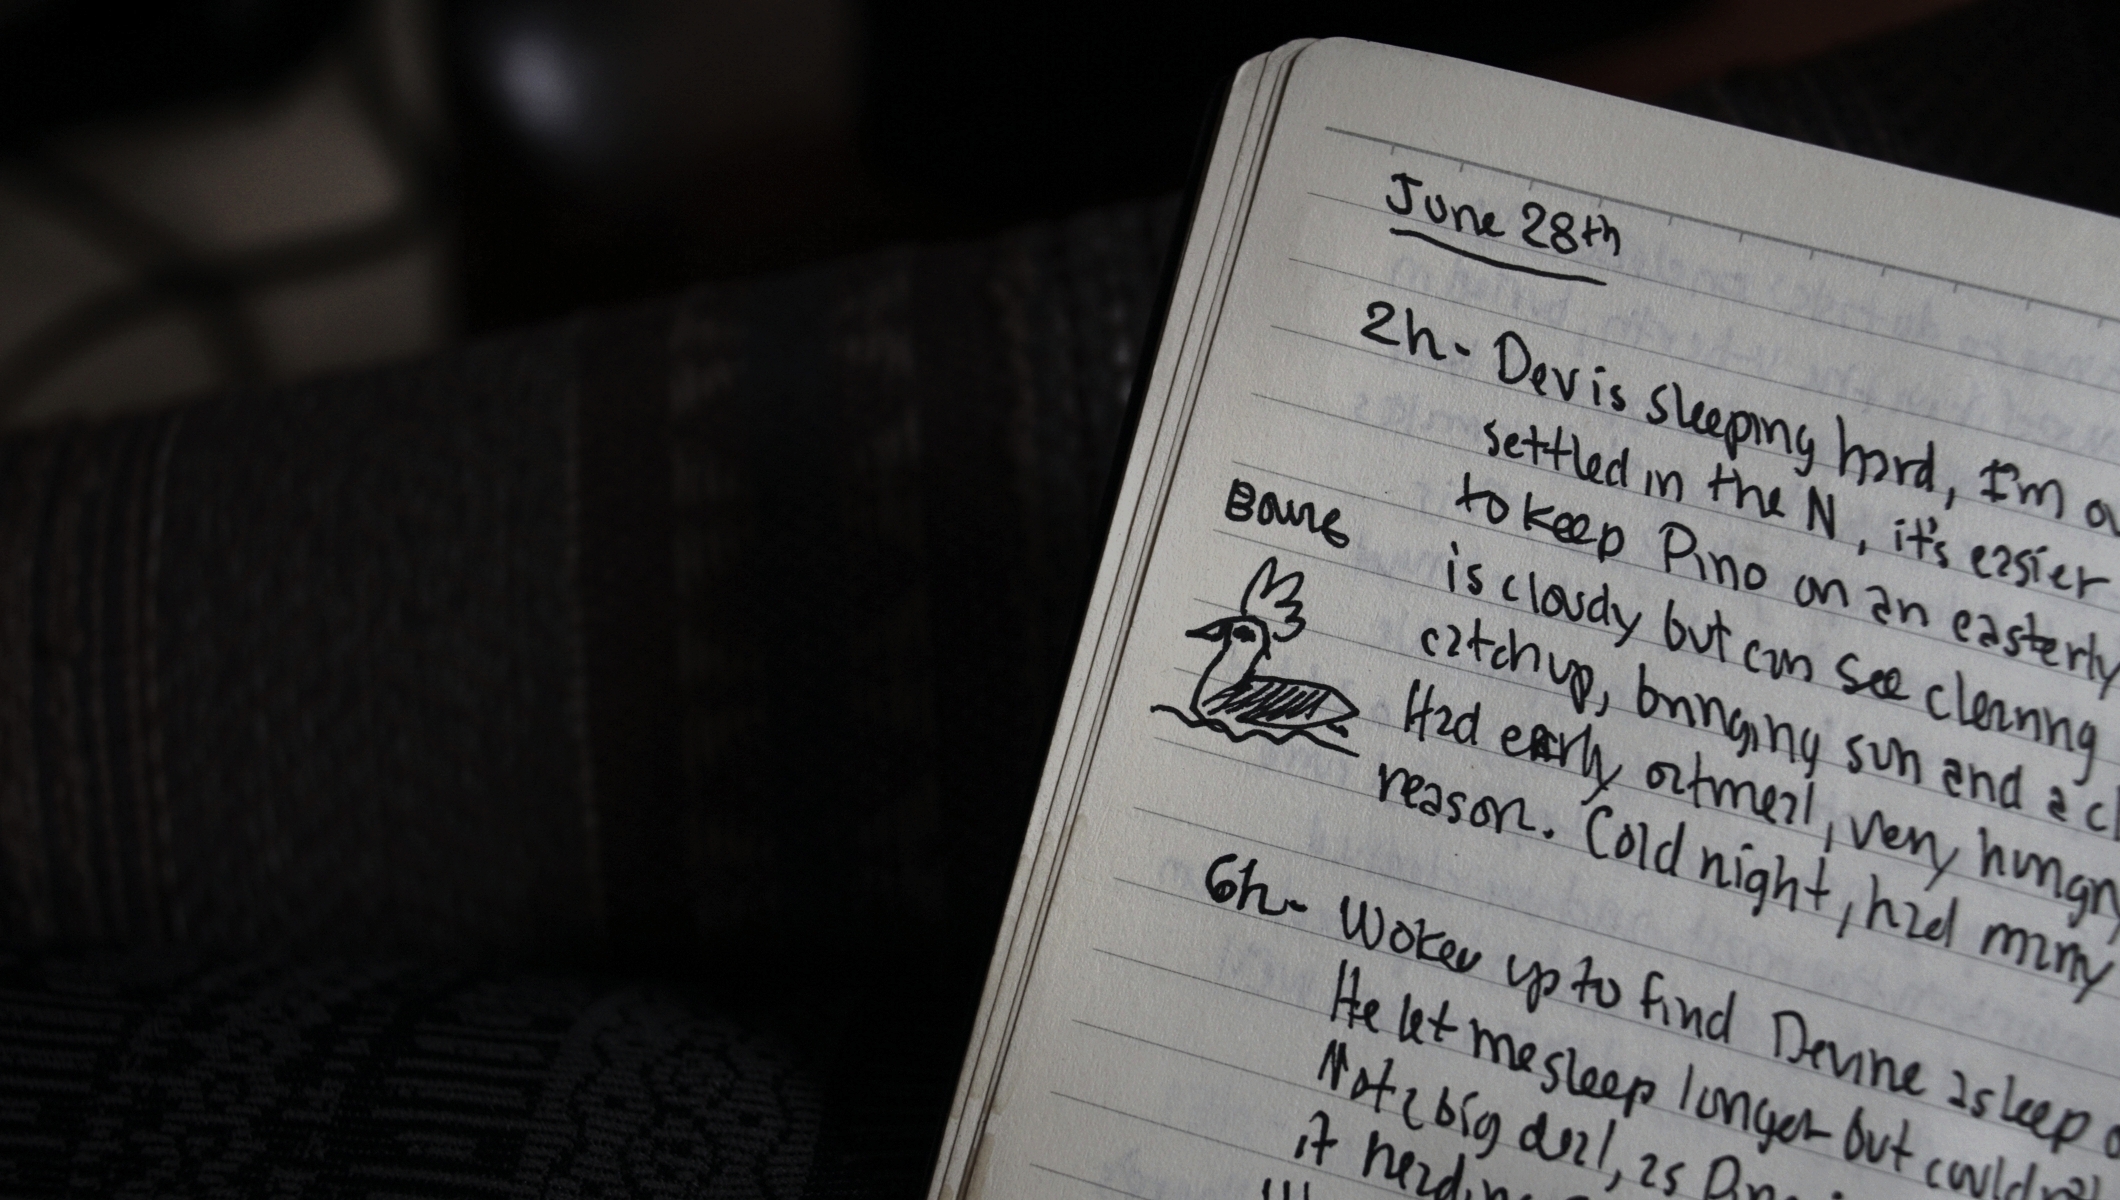 June 28th
2h- Dev is sleeping hard, I'm
settled in the N, it's easier
to keep Pino on an easterly
is cloudy but can see clearing
catch up, bringing sun and a
Had early oatmeal, very hungry
reason. Cold night, had many
6h- up to find Devine asleep
He let me sleep longer but
Not a big deal, as
it